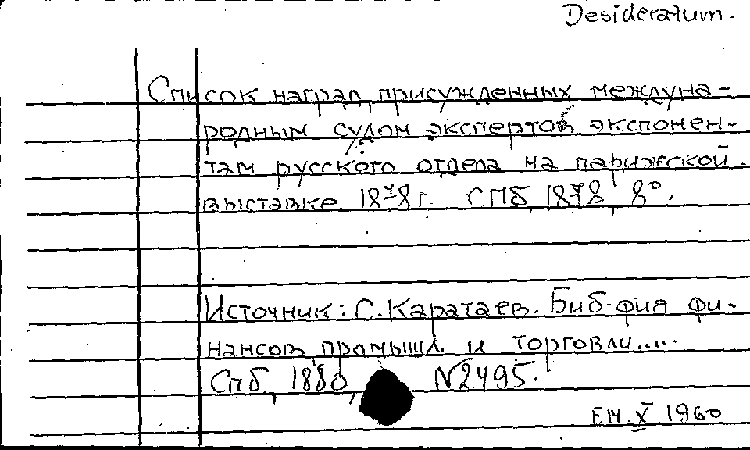 Desideratum.
Список наград, присужденных междуна-
родным судом экспертов экспонен-
там русского отдела на парижской
выставке 1878 г. СПб, 1878, 8°.
Источник: С. Каратаев. Биб-фия фи-
нансов, промышл. и торговли.....
Спб, 1880, N2495.
ЕН. X 1960